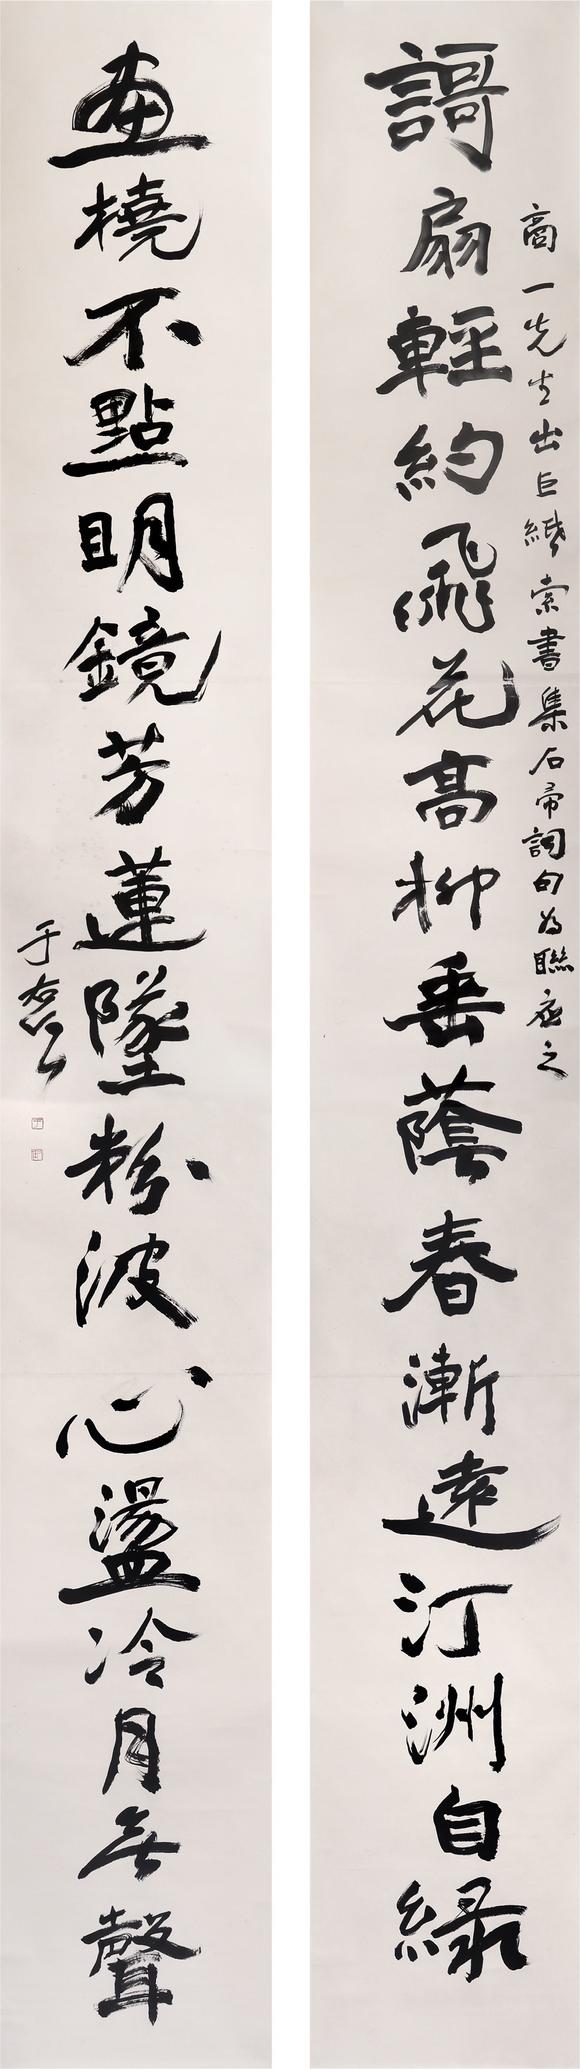 商一先生出巨縑索書集石帚詞句為聯應之
謌扇輕約飛花高柳垂蔭春漸遠汀洲自綠
畫橈不點明鏡芳蓮墜粉波心盪冷月無聲
于右任